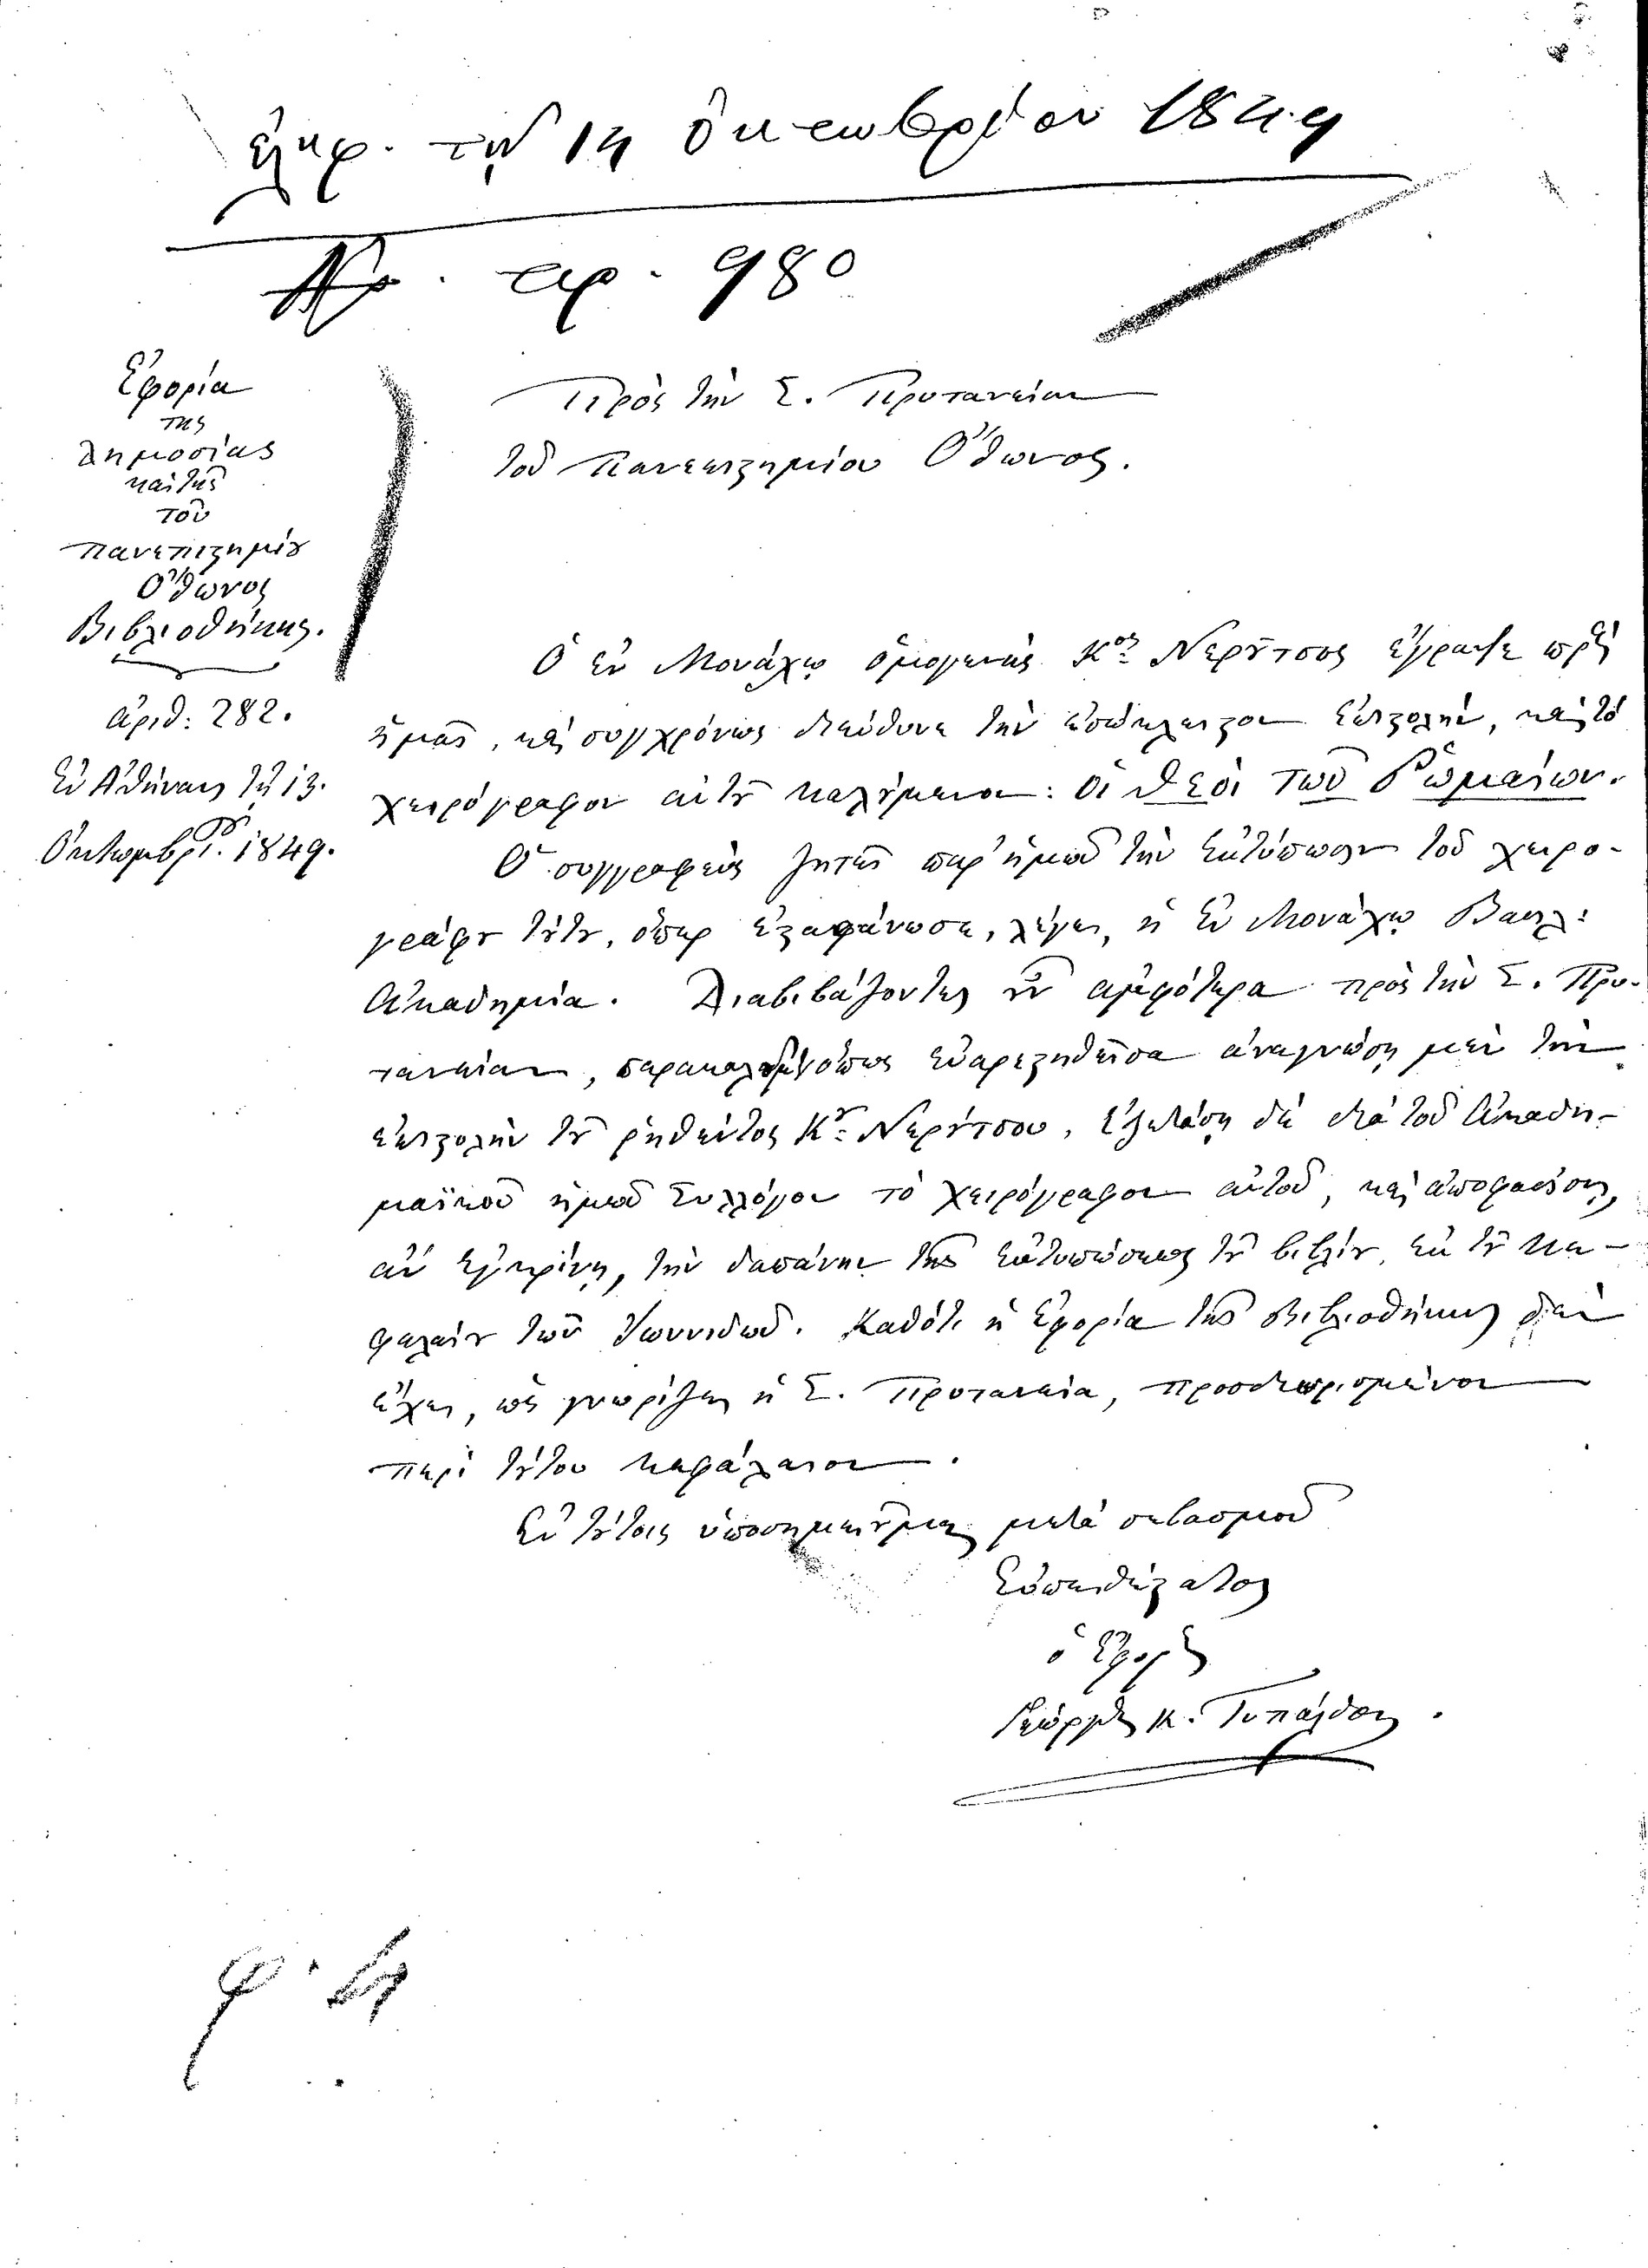 ἐλήφ. τῇ 14 ὀκτωβρίου 1849
Πρ. αρ. 980
Ἐφορία
της
Δημοσίας
καὶ τῆς
τοῦ
Πανεπιστημίου
Ὄθωνος
Βιβλιοθήκης.
ἀριθ: 282.
Ἐν Ἀθήναις τῇ 13.
Ὀκτωμβρίου. 1849.
Πρὸς τὴν Σ. Πρυτανείαν
τοῦ Πανεπιστημίου Ὄθωνος.
Ὁ ἐν Μονάχῳ ὁμογενὴς Κος Νερούτσος ἔγραψε πρὸς
ἡμᾶς, καὶ συγχρόνως διεύθυνε τὴν ἐσώκλειστον ἐπιστολὴν, καὶ τὸ
χειρόγραφον αὐτοῦ καλούμενον: οἱ θεοὶ τῶν Ῥωμαίων.
Ὁ συγγραφεὺς ζητεῖ παρ' ἡμῶν τὴν ἐκτύπωσιν τοῦ χειρο-
γράφου τούτου, ὅπερ ἐστεφάνωσε, λέγει, ἡ ἐν Μονάχῳ Βασιλ:
Ἀκαδημία. Διαβιβάζοντες οὖν ἀμφότερα πρὸς τὴν Σ. Πρυ-
τανείαν, παρακαλοῦμεν ὅπως εὐαρεστηθεῖσα ἀναγνώσῃ μὲν τὴν
ἐπιστολὴν τοῦ ῥηθέντος Κου Νερούτσου, ἐξετάσῃ δὲ διὰ τοῦ Ἀκαδη-
μαϊκοῦ ἡμῶν Συλλόγου τὸ χειρόγραφον αὐτοῦ, καὶ ἀποφασίσῃ,
ἂν ἐγκρίνῃ, τὴν δαπάνην τῆς ἐκτυπώσεως τοῦ βιβλίου ἐκ τοῦ κε-
φαλαίου τῶν Ἰωνιδῶν. Καθότι ἡ Ἐφορία τῆς Βιβλιοθήκης δὲν
ἔχει, ὡς γνωρίζει ἡ Σ. Πρυτανεία, προσδιωρισμένον
περὶ τούτου κεφάλαιον.
Ἐν τούτοις ὑποσημειοῦμαι μετὰ σεβασμοῦ
Εὐπειθέστατος
ὁ Ἔφορος
Γεώργιος Κ. Τυπάλδος.